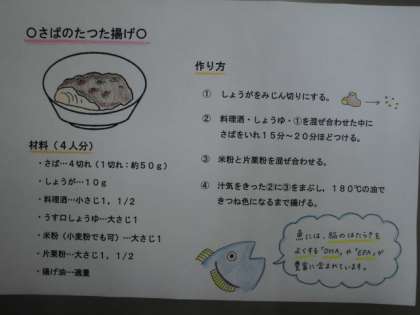 ○さばのたつた揚げ○
材料（４人分）
・さば…４切れ（１切れ：約５０ｇ）
・しょうが…１０ｇ
・料理酒…小さじ１，１/２
・うす口しょうゆ…大さじ１
・米粉（小麦粉でも可）…大さじ１
・片栗粉…大さじ１，１/２
・揚げ油…適量
作り方
① しょうがをみじん切りにする。
② 料理酒・しょうゆ・①を混ぜ合わせた中に
さばをいれ１５分～２０分ほどつける。
③ 米粉と片栗粉を混ぜ合わせる。
④ 汁気をきった②に③をまぶし、１８０℃の油で
きつね色になるまで揚げる。
魚には、脳のはたらきを
よくする「DHA」や「EPA」が
豊富に含まれています。